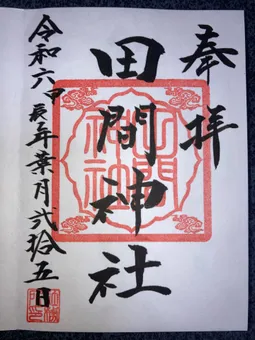 奉拝
田間神社
令和六甲辰年葉月弐拾五日